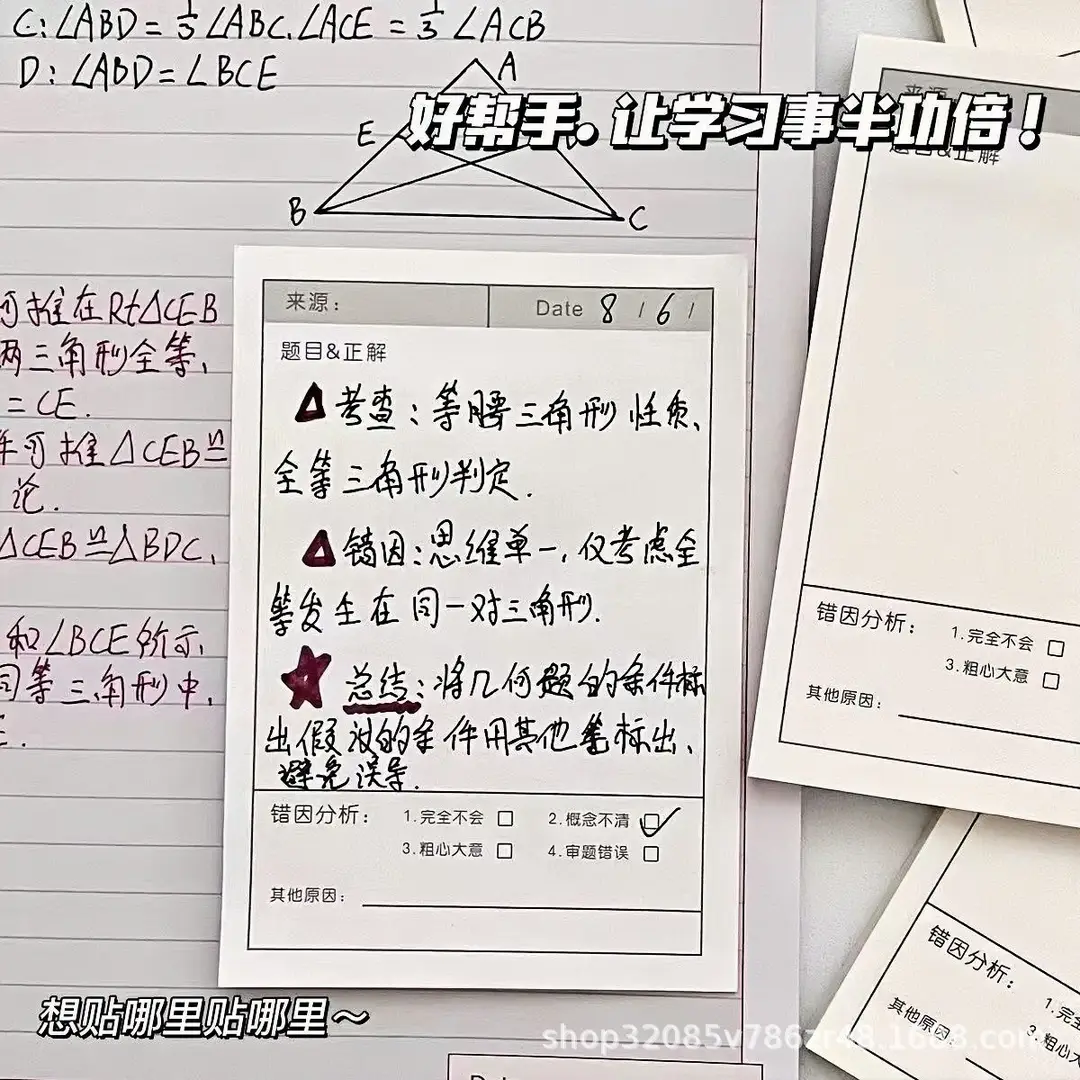 C:∠ABD=1/3∠ABC.∠ACE=1/3∠ACB
D:∠ABD=∠BCE
A
好帮手.让学习事半功倍！
E
B
C
可推在Rt△CEB
两三角形全等,
=CE.
可推△CEB≌
论.
△CEB≌△BDC,
和∠BCE所示,
同等三角形中,
来源：
Date 8 / 6 /
题目&正解
△考查:等腰三角形性质、
全等三角形判定.
△错因:思维单一,仅考虑全
等发生在同一对三角形.
★总结:将几何题的条件标
出假设的条件用其他笔标出、
避免误导.
错因分析：
1.完全不会 □
2.概念不清 ☑
3.粗心大意 □
4.审题错误 □
其他原因：
来源
题目&正解
错因分析：
1.完全不会 □
3.粗心大意 □
其他原因：
错因分析：
1.完全
3.粗心大
其他原因
想贴哪里贴哪里～